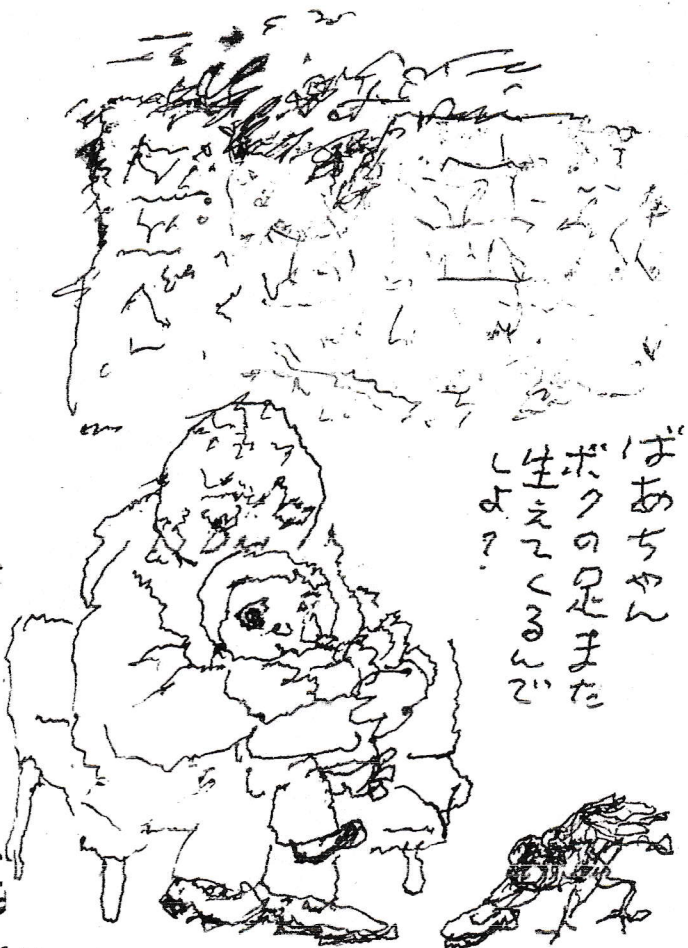 ばあちゃん
ボクの足また
生えてくるんで
しよ？